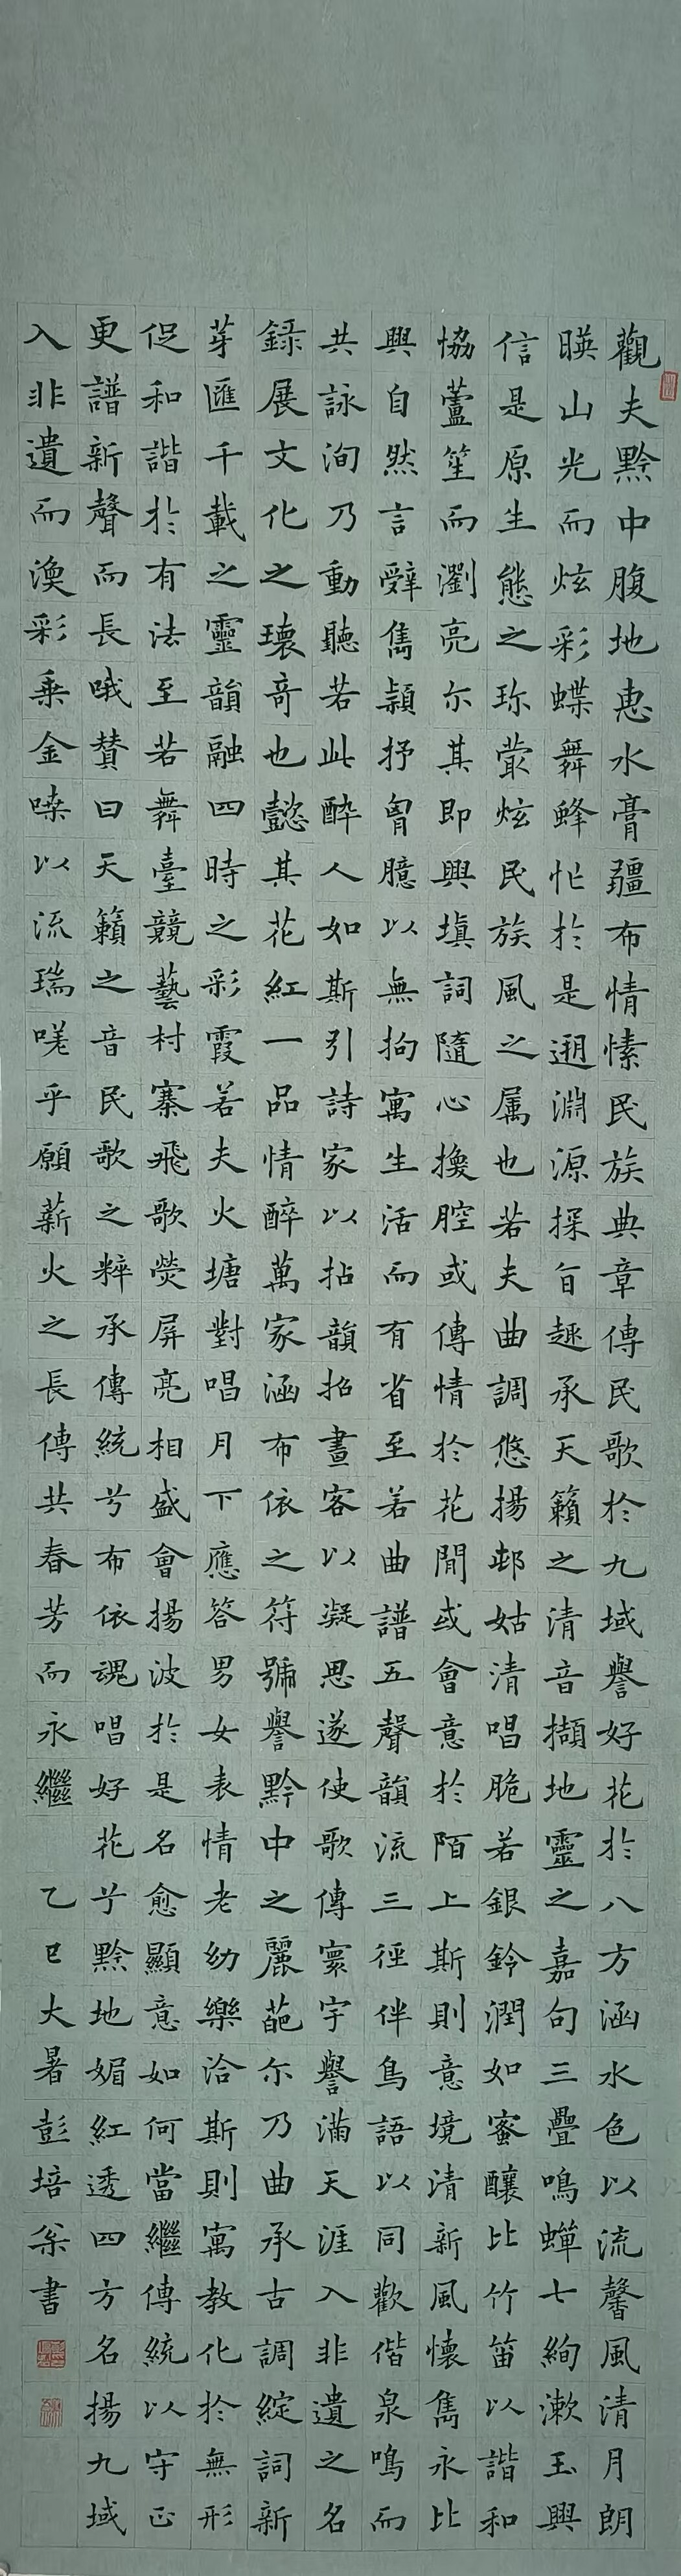 觀夫黔中腹地惠水膏疆布情愫民族典章傳民歌於九域譽好花於八方涵水色以流馨風清月朗
暎山光而炫彩蝶舞蜂忙於是遡淵源探旨趣承天籟之清音擷地靈之嘉句三疊鳴蟬七絢漱玉興
信是原生態之珎藂炫民族風之属也若夫曲調悠揚邨姑清唱脆若銀鈴潤如蜜釀比竹笛以諧和
恊蘆笙而瀏亮尔其即興填詞隨心換腔或傳情於花間或會意於陌上斯則意境清新風懷雋永比
興自然言辭雋穎抒胷臆以無拘寓生活而有省至若曲譜五聲韻流三徑伴鳥語以同歡偕泉鳴而
共詠洵乃動聽若此醉人如斯引詩家以拈韻招畫客以凝思遂使歌傳寰宇譽滿天涯入非遺之名
録展文化之瓌奇也懿其花紅一品情醉萬家涵布依之符號譽黔中之麗葩尔乃曲承古調綻詞新
芽匯千載之靈韻融四時之彩霞若夫火塘對唱月下應答男女表情老幼樂洽斯則寓教化於無形
促和諧於有法至若舞臺競藝村寨飛歌熒屏亮相盛會揚波於是名愈顯意如何當繼傳統以守正
更譜新聲而長哦贊曰天籟之音民歌之粹承傳統兮布依魂唱好花兮黔地媚紅透四方名揚九域
入非遺而渙彩乗金嗓以流瑞嗟乎願薪火之長傳共春芳而永繼 乙巳大暑彭培尒書